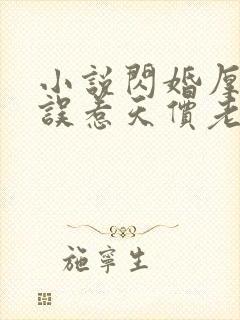 小說閃婚厚
誤惹天價老
施寧生